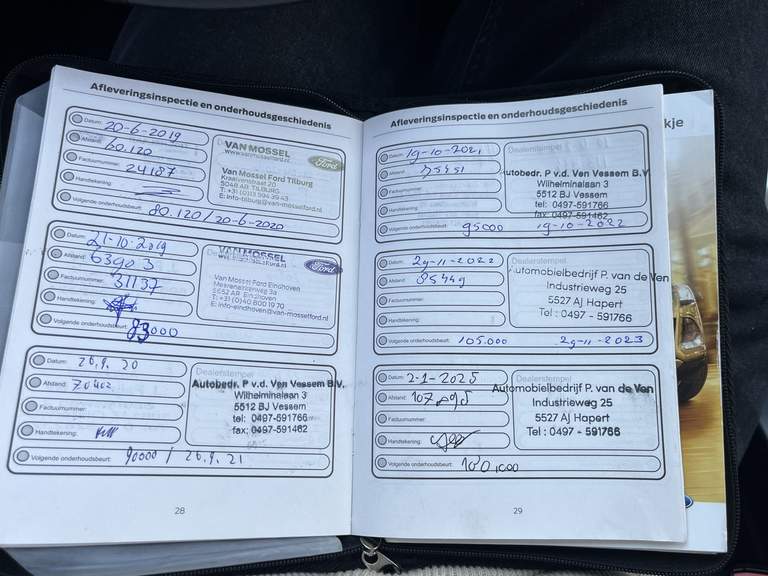 Afleveringsinspectie en onderhoudsgeschiedenis
Datum: 20-6-2019
Afstand: 60.120
Factuurnummer: 24187
Handtekening:
Volgende onderhoudsbeurt: 80.120 / 20-6-2020
VAN MOSSEL
www.vanmosselford.nl
Ford
Van Mossel Ford Tilburg
Kraaivenstraat 20
5048 AB TILBURG
E: info-tilburg@vanmosselford.nl
Datum: 21-10-2019
Afstand: 63903
Factuurnummer: 31137
Handtekening:
Volgende onderhoudsbeurt: 83000
VAN MOSSEL
www.vanmosselford.nl
Ford
Van Mossel Ford Eindhoven
Meerenakkerweg 3a
5652 AR Eindhoven
T: +31 (0)40 800 19 70
E: info-eindhoven@vanmosselford.nl
Datum: 26.9.20
Afstand: 70402
Factuurnummer:
Handtekening:
Volgende onderhoudsbeurt: 90000 / 26.9.21
Dealerstempel
Autobedr. P v.d. Ven Vessem B.V.
Wilhelminalaan 3
5512 BJ Vessem
tel: 0497-591766
fax: 0497-591462
28
Afleveringsinspectie en onderhoudsgeschiedenis
Datum: 19-10-2021
Afstand:
Factuurnummer:
Handtekening:
Volgende onderhoudsbeurt: 95000 19-10-2022
Dealerstempel
Autobedr. P v.d. Ven Vessem B.V.
Wilhelminalaan 3
5512 BJ Vessem
tel: 0497-591766
fax: 0497-591462
Datum: 29-11-2022
Afstand: 85449
Factuurnummer:
Handtekening:
Volgende onderhoudsbeurt: 105.000 29-11-2023
Dealerstempel
Automobielbedrijf P. van de Ven
Industrieweg 25
5527 AJ Hapert
Tel : 0497 - 591766
Datum: 2-1-2025
Afstand:
Factuurnummer:
Handtekening:
Volgende onderhoudsbeurt:
Dealerstempel
Automobielbedrijf P. van de Ven
Industrieweg 25
5527 AJ Hapert
Tel : 0497 - 591766
29
kje